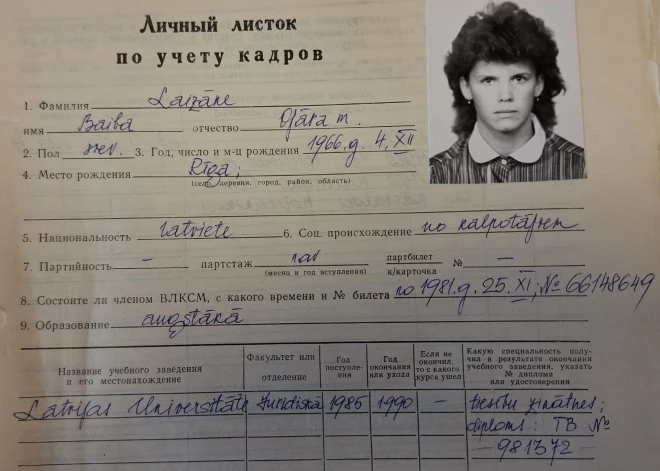 Личный листок
по учету кадров
1. Фамилия Laizāne
имя Baiba отчество Ojāra m.
2. Пол жен. 3. Год, число и м-ц рождения 1966.g. 4. XII
4. Место рождения Rīga;
(село, деревня, город, район, область)
5. Национальность latviete 6. Соц. происхождение no kalpotājiem
7. Партийность — партстаж nav партбилет № —
(месяц и год вступления) к/карточка
8. Состоите ли членом ВЛКСМ, с какого времени и № билета no 1981.g. 25. XI; № 66148649
9. Образование augstākā
Название учебного заведения и его местонахождение
Факультет или отделение
Год поступления
Год окончания или ухода
Если не окончил, то с какого курса ушел
Какую специальность получил в результате окончания учебного заведения, указать № диплома или удостоверения
Latvijas Universitāte Juridiskā 1985 1990 — tiesību zinātnes;
diploms: ТВ №
— 981372 —